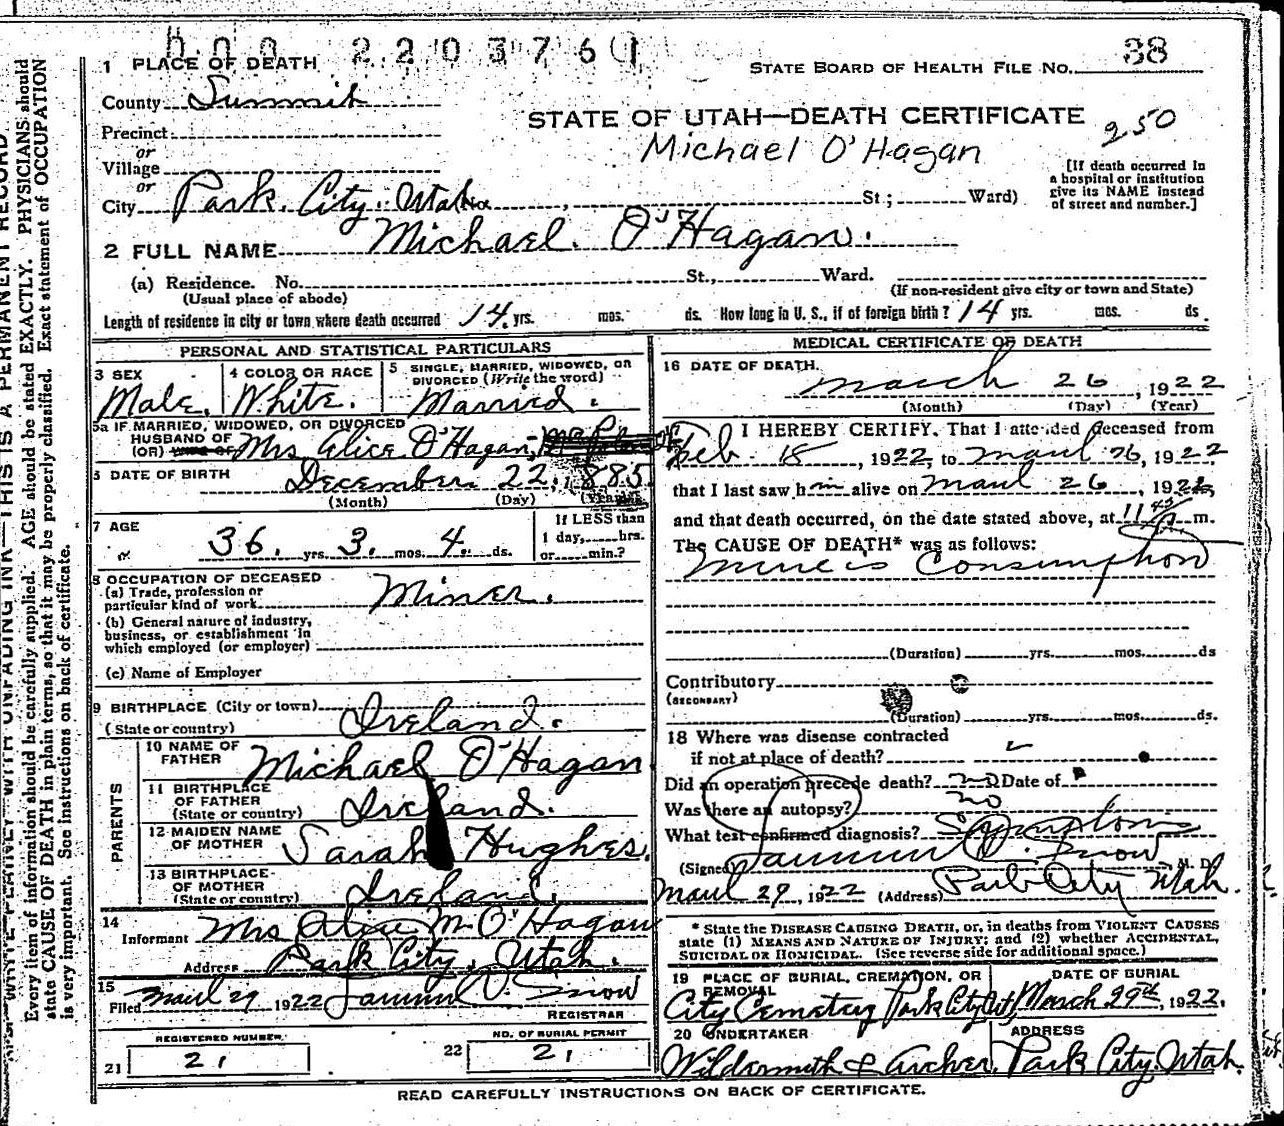 220376
1 PLACE OF DEATH
STATE BOARD OF HEALTH FILE NO. 38
County Summit
STATE OF UTAH—DEATH CERTIFICATE
250
Precinct
Michael O'Hagan
or
Village
or
City Park City, Utah No. St; Ward)
[If death occurred in
a hospital or institution
give its NAME instead
of street and number.]
2 FULL NAME Michael O'Hagan.
(a) Residence. No. St., Ward.
(Usual place of abode)
(If non-resident give city or town and State)
Length of residence in city or town where death occurred 14 yrs. mos. ds. How long in U. S., if of foreign birth? 14 yrs. mos. ds.
PERSONAL AND STATISTICAL PARTICULARS
3 SEX
Male.
4 COLOR OR RACE
White.
5 SINGLE, MARRIED, WIDOWED, OR
DIVORCED (Write the word)
Married.
5a IF MARRIED, WIDOWED, OR DIVORCED
HUSBAND OF
(OR) WIFE OF Mrs Alice O'Hagan,
6 DATE OF BIRTH December 22, 1885
(Month) (Day) (Year)
7 AGE
36. yrs. 3. mos. 4. ds.
If LESS than
1 day, hrs.
or min.?
8 OCCUPATION OF DECEASED
(a) Trade, profession or
particular kind of work Miner.
(b) General nature of industry,
business, or establishment in
which employed (or employer)
(c) Name of Employer
9 BIRTHPLACE (City or town)
(State or country) Ireland.
PARENTS
10 NAME OF
FATHER Michael O'Hagan
11 BIRTHPLACE
OF FATHER
(State or country) Ireland.
12 MAIDEN NAME
OF MOTHER Sarah Hughes.
13 BIRTHPLACE
OF MOTHER
(State or country) Ireland.
14
Informant Mrs Alice M. O'Hagan
Address Park City, Utah.
15
Filed March 29 1922 Samuel O. Snow
REGISTRAR
REGISTERED NUMBER
21 21
NO. OF BURIAL PERMIT
22 21
MEDICAL CERTIFICATE OF DEATH
16 DATE OF DEATH.
March 26, 1922
(Month) (Day) (Year)
I HEREBY CERTIFY, That I attended deceased from
Feb. 18, 1922, to March 26, 1922
that I last saw him alive on March 26, 1922,
and that death occurred, on the date stated above, at 11 45 m.
The CAUSE OF DEATH* was as follows:
Miners Consumption
(Duration) yrs. mos. ds
Contributory
(SECONDARY)
(Duration) yrs. mos. ds.
18 Where was disease contracted
if not at place of death?
Did an operation precede death? no Date of
Was there an autopsy? no
What test confirmed diagnosis? Symptoms
(Signed) Samuel O. Snow M. D.
March 29, 1922 (Address) Park City Utah.
* State the DISEASE CAUSING DEATH, or, in deaths from VIOLENT CAUSES
state (1) MEANS AND NATURE OF INJURY; and (2) whether ACCIDENTAL,
SUICIDAL OR HOMICIDAL. (See reverse side for additional space.)
19 PLACE OF BURIAL, CREMATION, OR
REMOVAL
City Cemetery Park City Ut,
DATE OF BURIAL
March 29th, 1922.
20 UNDERTAKER
Wildermuth & Archer,
ADDRESS
Park City, Utah.
READ CAREFULLY INSTRUCTIONS ON BACK OF CERTIFICATE.
WRITE PLAINLY WITH UNFADING INK—THIS IS A PERMANENT RECORD
Every item of information should be carefully supplied. AGE should be stated EXACTLY. PHYSICIANS should
state CAUSE OF DEATH in plain terms, so that it may be properly classified. Exact statement of OCCUPATION
is very important. See instructions on back of certificate.